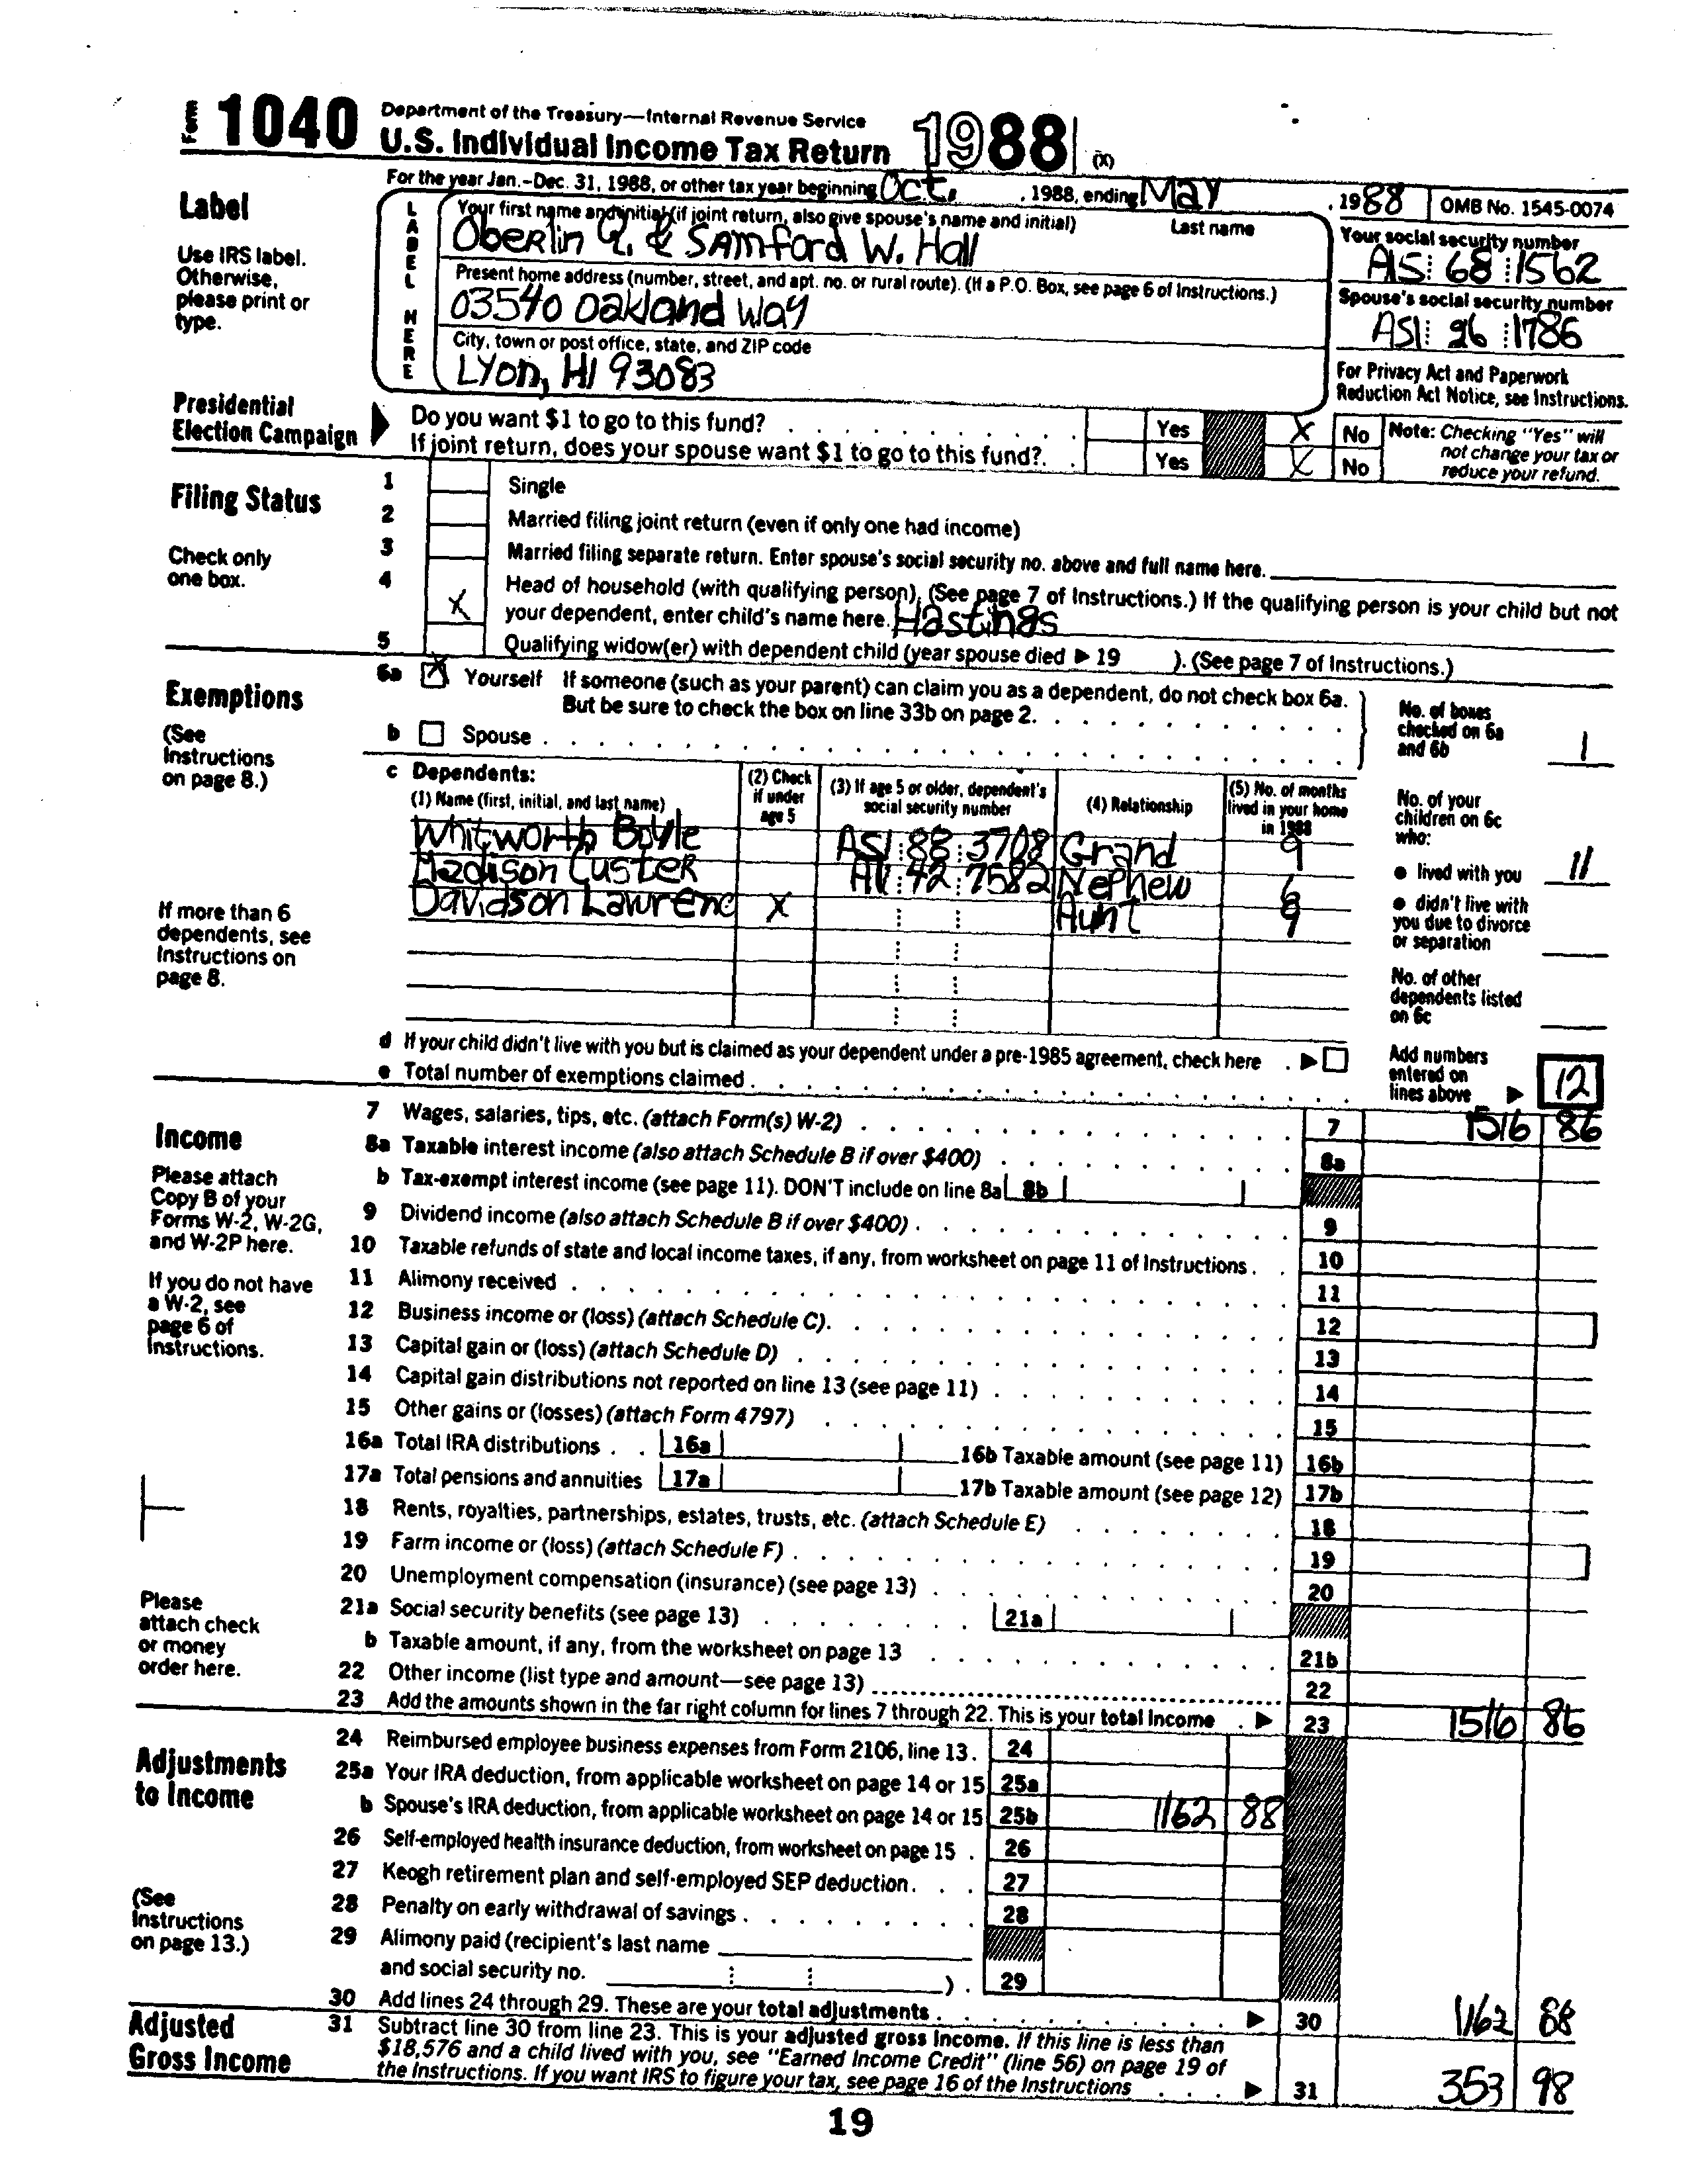 Form 1040 Department of the Treasury—Internal Revenue Service
U.S. Individual Income Tax Return 1988 (X)
For the year Jan.-Dec. 31, 1988, or other tax year beginning Oct. , 1988, ending May , 1988 OMB No. 1545-0074
Label
Use IRS label.
Otherwise,
please print or
type.
LABEL HERE
Your first name and initial (if joint return, also give spouse's name and initial) Last name
Oberlin Q. & Samford W. Hall
Your social security number
AIS: 68 :1562
Present home address (number, street, and apt. no. or rural route). (If a P.O. Box, see page 6 of Instructions.)
03540 Oakland Way
Spouse's social security number
ASI: 26 :1786
City, town or post office, state, and ZIP code
Lyon, HI 93083
For Privacy Act and Paperwork
Reduction Act Notice, see Instructions.
Presidential
Election Campaign
Do you want $1 to go to this fund? Yes X No
If joint return, does your spouse want $1 to go to this fund? Yes X No
Note: Checking "Yes" will
not change your tax or
reduce your refund.
Filing Status
Check only
one box.
1 Single
2 Married filing joint return (even if only one had income)
3 Married filing separate return. Enter spouse's social security no. above and full name here.
4 X Head of household (with qualifying person). (See page 7 of Instructions.) If the qualifying person is your child but not
your dependent, enter child's name here. Hastings
5 Qualifying widow(er) with dependent child (year spouse died ▶ 19 ). (See page 7 of Instructions.)
Exemptions
(See
Instructions
on page 8.)
If more than 6
dependents, see
Instructions on
page 8.
6a X Yourself If someone (such as your parent) can claim you as a dependent, do not check box 6a.
But be sure to check the box on line 33b on page 2.
b Spouse
No. of boxes
checked on 6a
and 6b 1
c Dependents:
(1) Name (first, initial, and last name)
(2) Check
if under
age 5
(3) If age 5 or older, dependent's
social security number
(4) Relationship
(5) No. of months
lived in your home
in 1988
Whitworth Boyle ASI:88:3708 Grand 9
Madison Custer :42:7582 Nephew 6
Davidson Lawrenc X Aunt 9
No. of your
children on 6c
who:
• lived with you 11
• didn't live with
you due to divorce
or separation
No. of other
dependents listed
on 6c
d If your child didn't live with you but is claimed as your dependent under a pre-1985 agreement, check here ▶
e Total number of exemptions claimed
Add numbers
entered on
lines above ▶ 12
Income
Please attach
Copy B of your
Forms W-2, W-2G,
and W-2P here.
If you do not have
a W-2, see
page 6 of
Instructions.
Please
attach check
or money
order here.
7 Wages, salaries, tips, etc. (attach Form(s) W-2) 7 1516 86
8a Taxable interest income (also attach Schedule B if over $400) 8a
b Tax-exempt interest income (see page 11). DON'T include on line 8a 8b
9 Dividend income (also attach Schedule B if over $400) 9
10 Taxable refunds of state and local income taxes, if any, from worksheet on page 11 of Instructions 10
11 Alimony received 11
12 Business income or (loss) (attach Schedule C) 12
13 Capital gain or (loss) (attach Schedule D) 13
14 Capital gain distributions not reported on line 13 (see page 11) 14
15 Other gains or (losses) (attach Form 4797) 15
16a Total IRA distributions 16a 16b Taxable amount (see page 11) 16b
17a Total pensions and annuities 17a 17b Taxable amount (see page 12) 17b
18 Rents, royalties, partnerships, estates, trusts, etc. (attach Schedule E) 18
19 Farm income or (loss) (attach Schedule F) 19
20 Unemployment compensation (insurance) (see page 13) 20
21a Social security benefits (see page 13) 21a
b Taxable amount, if any, from the worksheet on page 13 21b
22 Other income (list type and amount—see page 13) 22
23 Add the amounts shown in the far right column for lines 7 through 22. This is your total income ▶ 23 1516 86
Adjustments
to Income
(See
Instructions
on page 13.)
24 Reimbursed employee business expenses from Form 2106, line 13. 24
25a Your IRA deduction, from applicable worksheet on page 14 or 15 25a
b Spouse's IRA deduction, from applicable worksheet on page 14 or 15 25b 1162 88
26 Self-employed health insurance deduction, from worksheet on page 15 26
27 Keogh retirement plan and self-employed SEP deduction 27
28 Penalty on early withdrawal of savings 28
29 Alimony paid (recipient's last name
and social security no. ) 29
30 Add lines 24 through 29. These are your total adjustments ▶ 30 1162 88
Adjusted
Gross Income
31 Subtract line 30 from line 23. This is your adjusted gross income. If this line is less than
$18,576 and a child lived with you, see "Earned Income Credit" (line 56) on page 19 of
the Instructions. If you want IRS to figure your tax, see page 16 of the Instructions ▶ 31 353 98
19